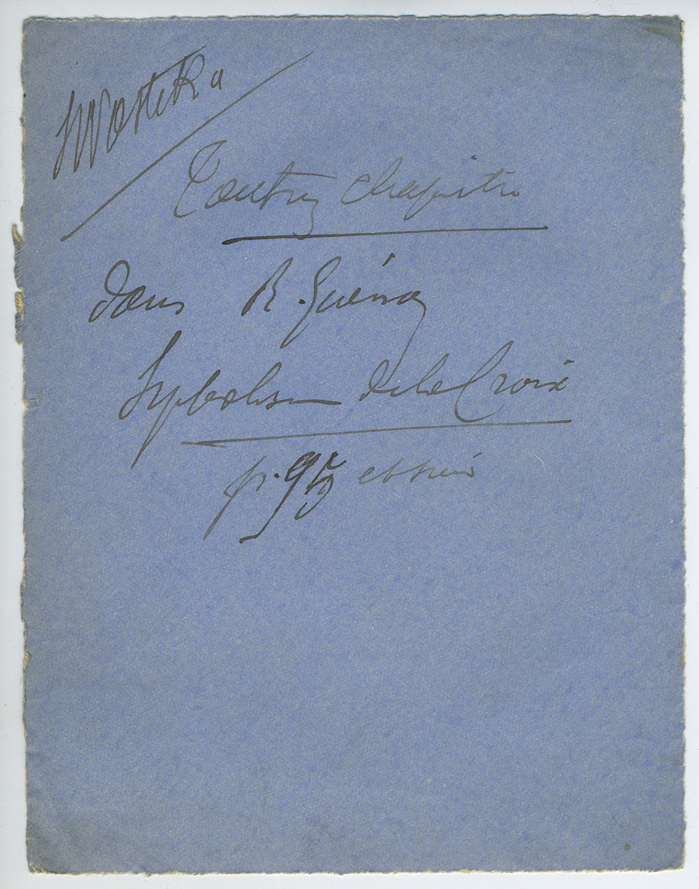 Swastika
Tout un chapitre
dans R. Guénon
Symbolisme de la Croix
p. 95 et suiv